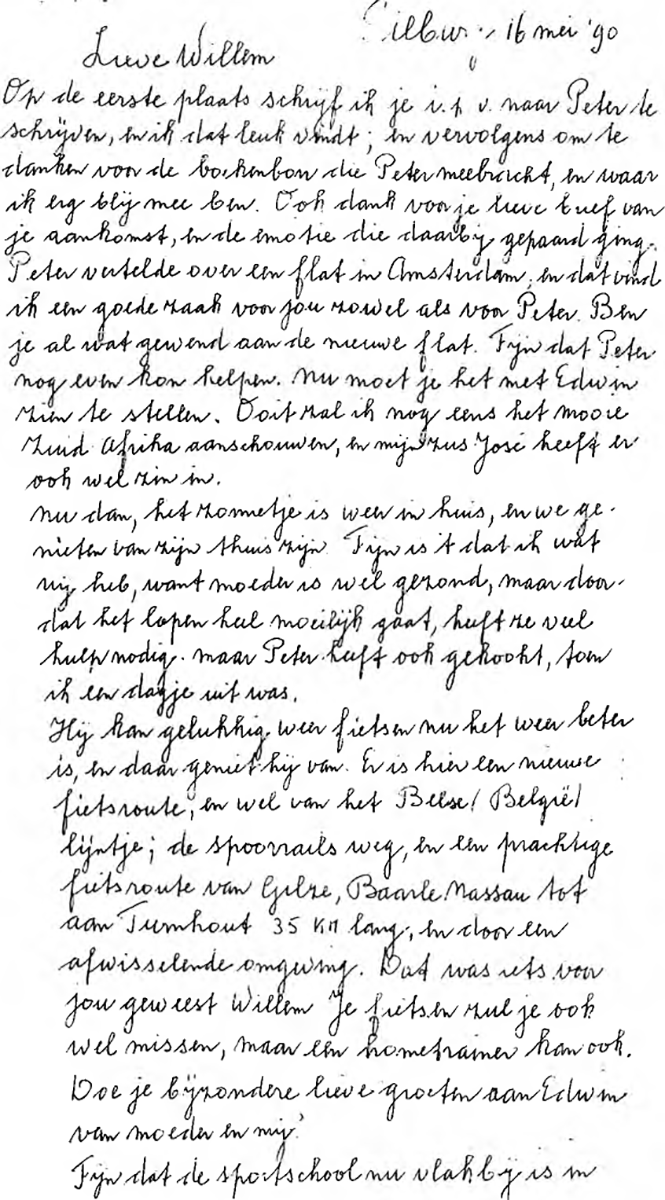 Tilburg, 16 mei '90
Lieve Willem
Op de eerste plaats schrijf ik je i.p.v. naar Peter te
schrijven, en ik dat leuk vindt; en vervolgens om te
danken voor de boekenbon die Peter meebracht, en waar
ik erg blij mee ben. Ook dank voor je lieve brief van
je aankomst, en de emotie die daarbij gepaard ging.
Peter vertelde over een flat in Amsterdam, en dat vind
ik een goede zaak voor jou zowel als voor Peter. Ben
je al wat gewend aan de nieuwe flat. Fijn dat Peter
nog even kon helpen. Nu moet je het met Edwin
zien te stellen. Ooit zal ik nog eens het mooie
Zuid Afrika aanschouwen, en mijn zus José heeft er
ook wel zin in.
Nu dan, het zonnetje is weer in huis, en we ge-
nieten van zijn thuis zijn. Fijn is 't dat ik wat
vrij heb, want moeder is wel gezond, maar door-
dat het lopen heel moeilijk gaat, heeft ze veel
hulp nodig. Maar Peter heeft ook gekookt, toen
ik een dagje uit was.
Hij kan gelukkig weer fietsen nu het weer beter
is, en daar geniet hij van. Er is hier een nieuwe
fietsroute, en wel van het Belse/België/
lijntje; de spoorrails weg, en een prachtige
fietsroute van Gilze, Baarle Nassau tot
aan Turnhout 35 KM lang, en door een
afwisselende omgeving. Dat was iets voor
jou geweest Willem Je fietsen zul je ook
wel missen, maar een hometrainer kan ook.
Doe je bijzondere lieve groeten aan Edwin
van moeder en mij.
Fijn dat de sportschool nu vlakbij is in